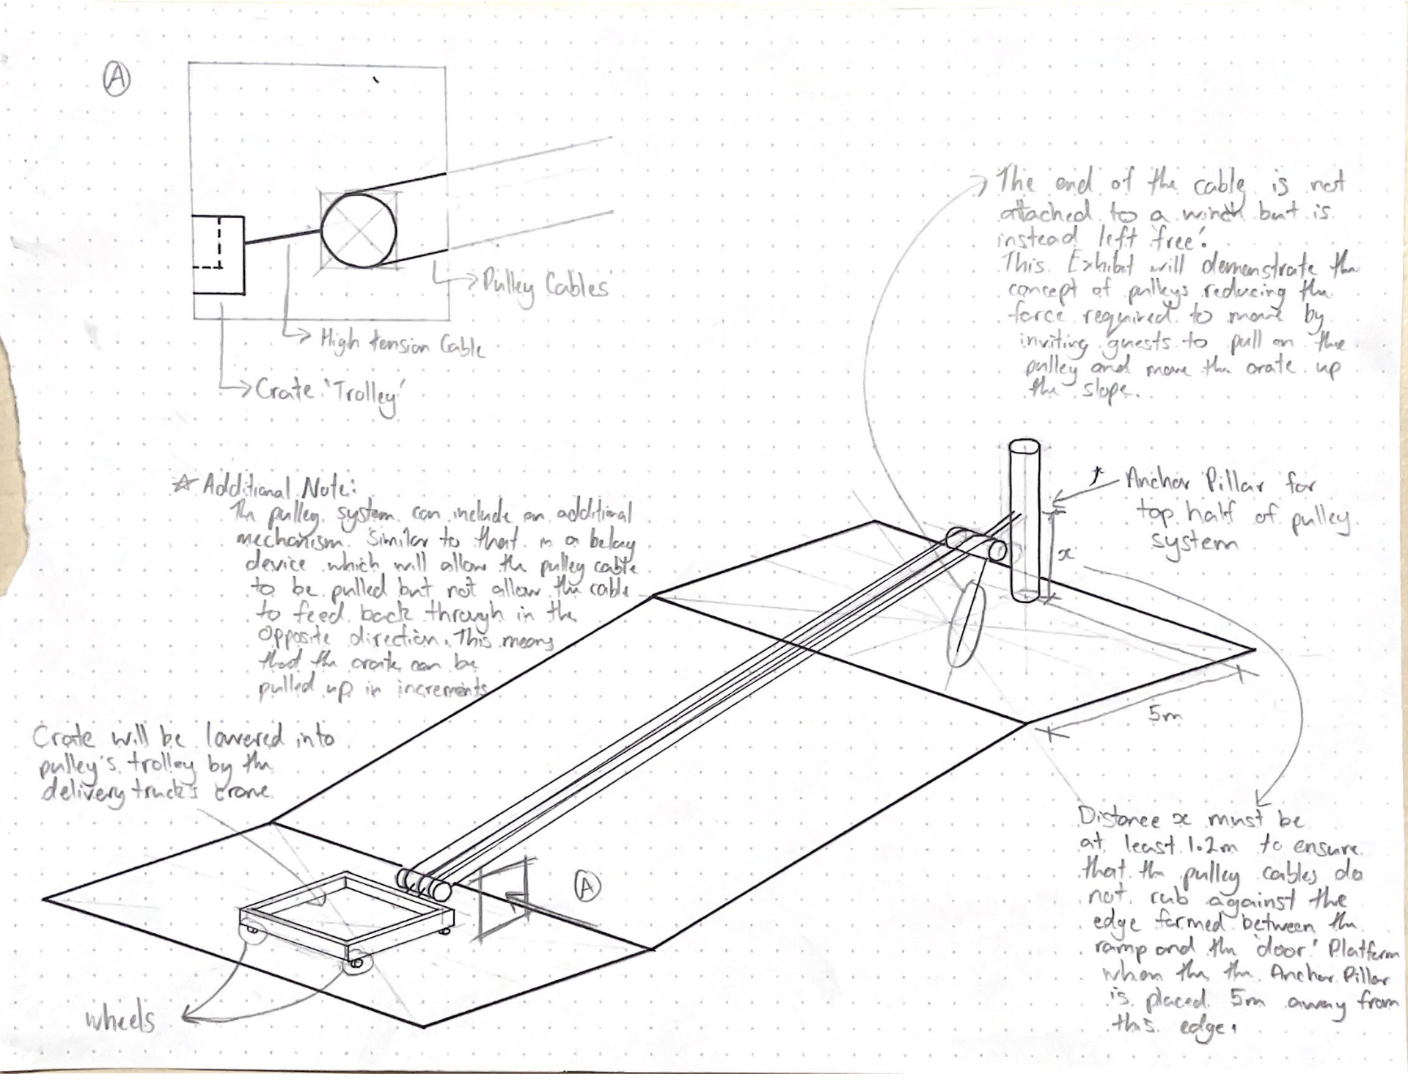 A
Pulley Cables
High tension Cable
Crate 'Trolley'
The end of the cable is not
attached to a winch but is
instead left 'free'.
This Exhibit will demonstrate the
concept of pulleys reducing the
force required to move by
inviting guests to pull on the
pulley and move the crate up
the slope.
☆ Additional Note:
The pulley system can include an additional
mechanism. Similar to that in a belay
device which will allow the pulley cable
to be pulled but not allow the cable
to feed back through in the
opposite direction. This means
that the crate can be
pulled up in increments
Anchor Pillar for
top half of pulley
system
x
5m
Crate will be lowered into
pulley's trolley by the
delivery truck's crane
A
wheels
Distance x must be
at least 1.2m to ensure
that the pulley cables do
not rub against the
edge formed between the
ramp and the 'door' Platform
when the the Anchor Pillar
is placed 5m away from
this edge.